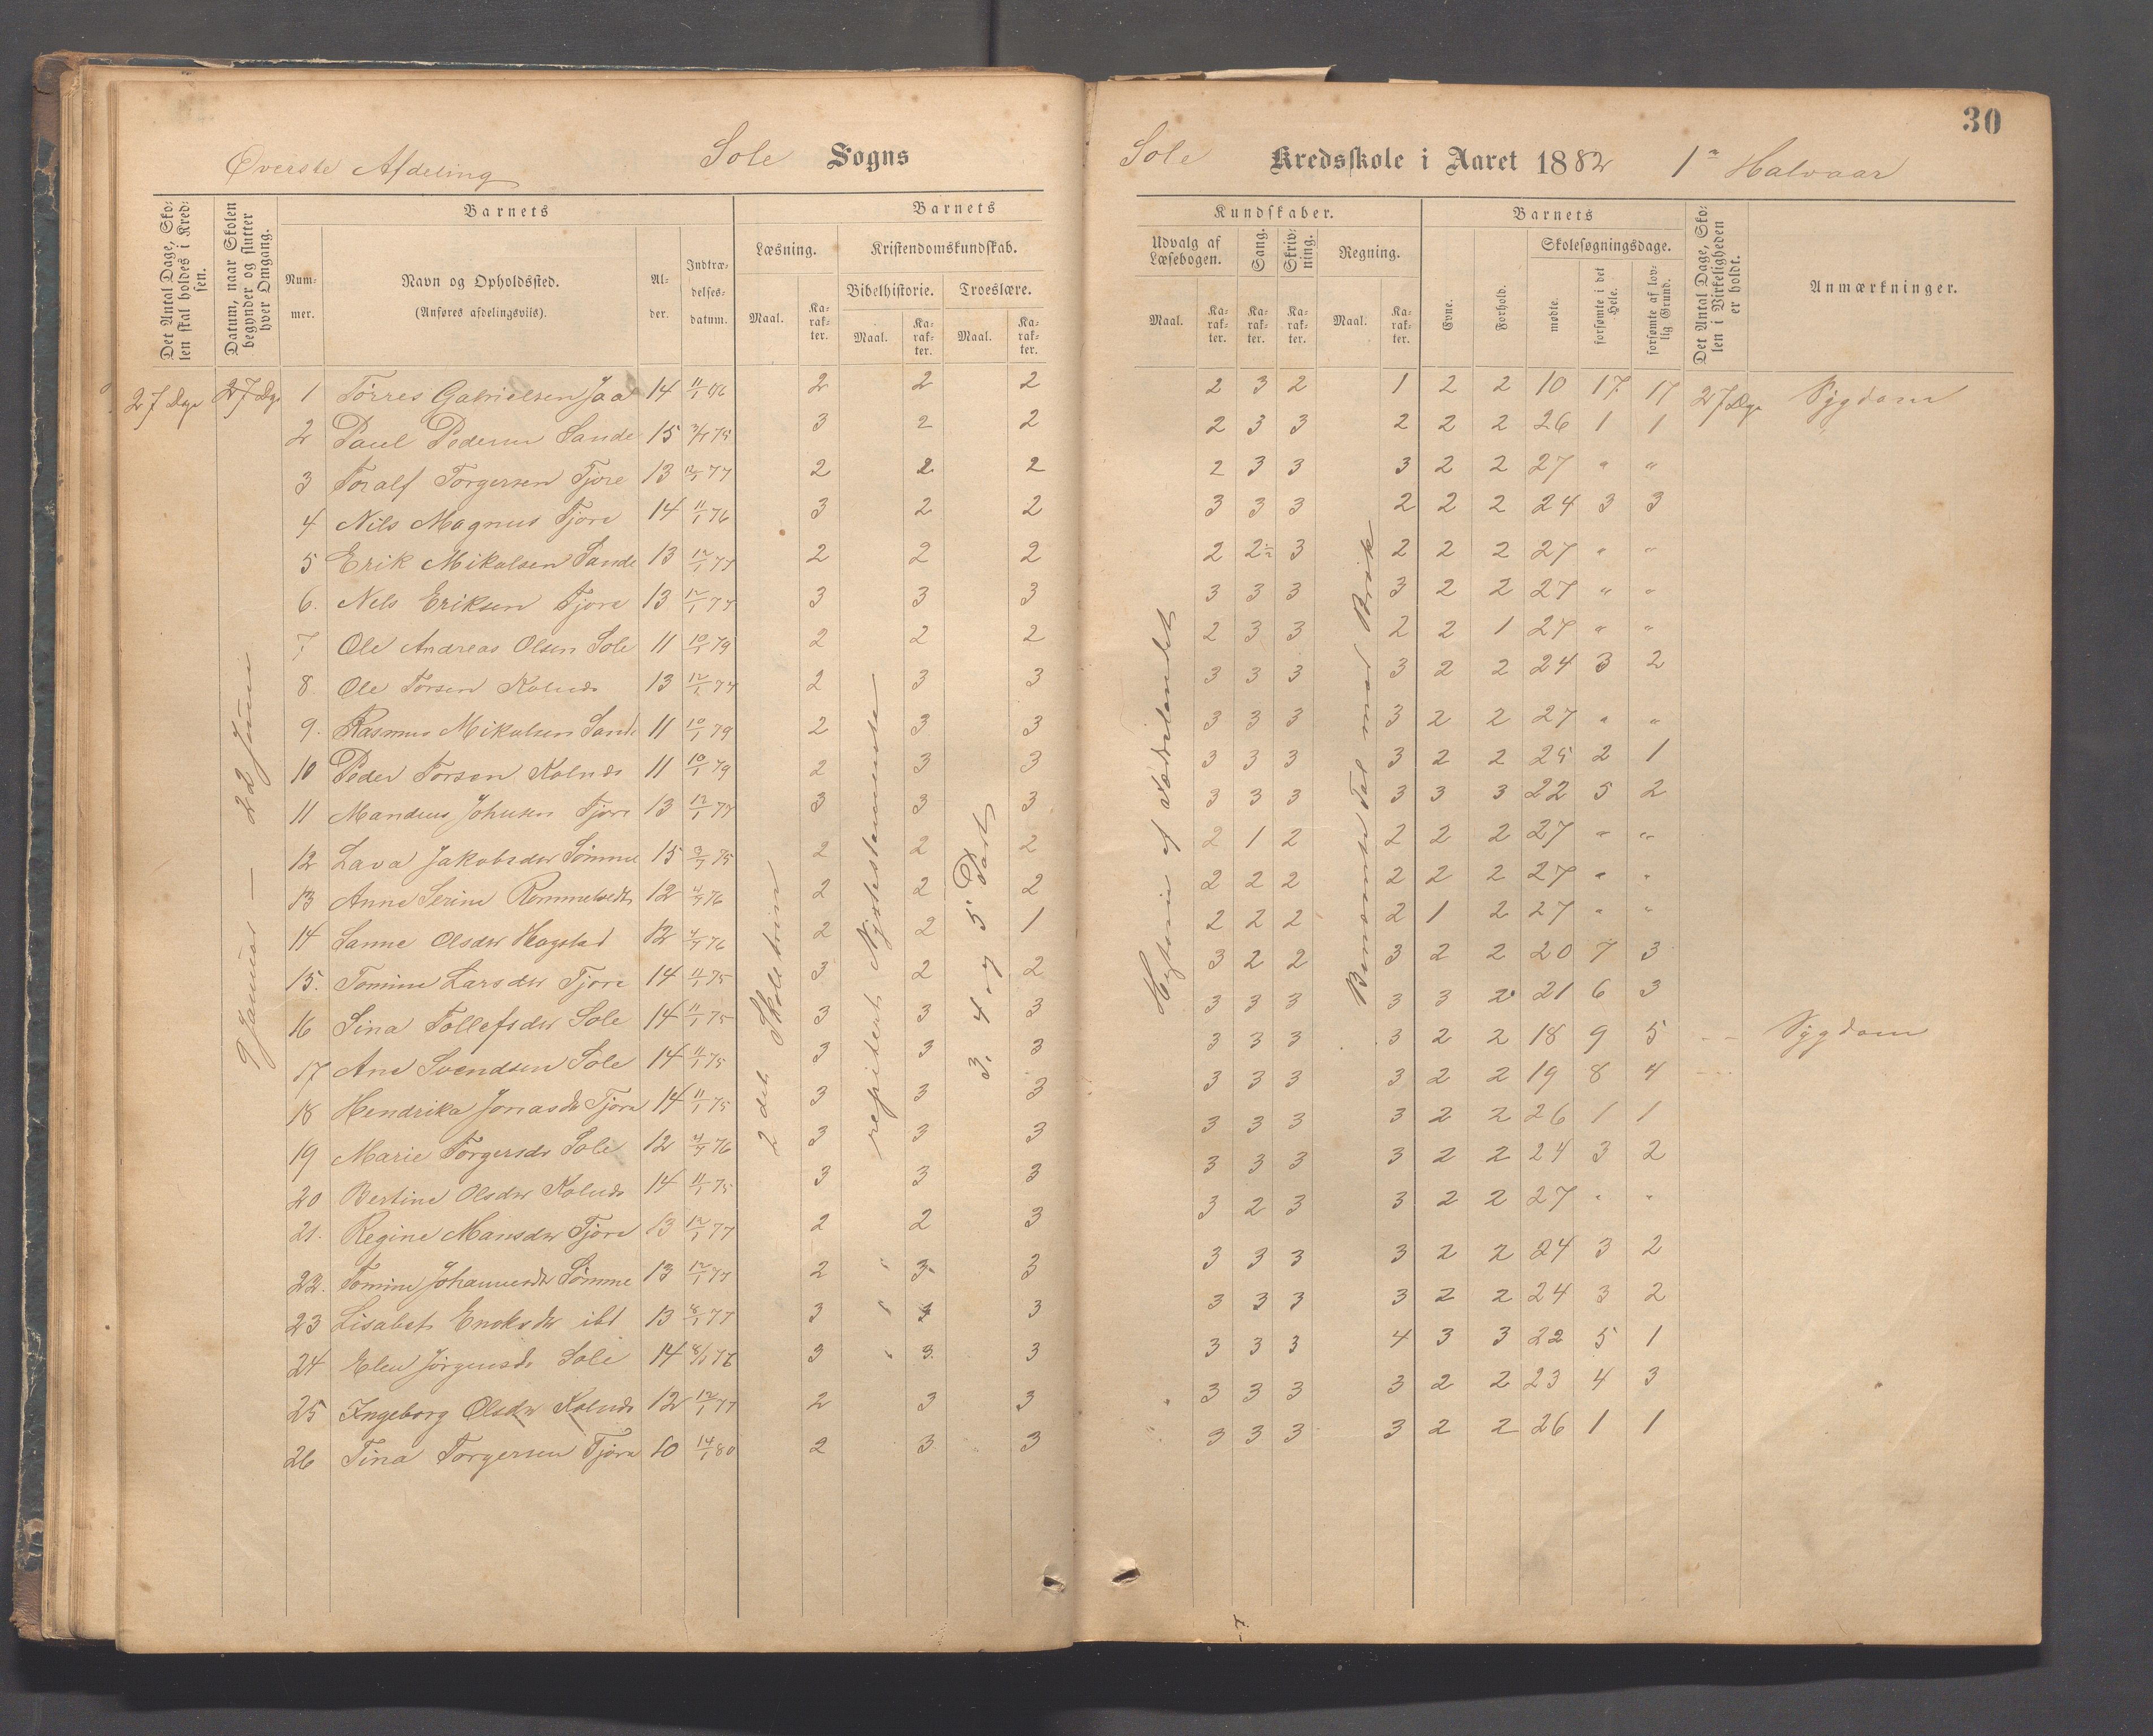 30
Øverste Afdeling Sole Sogns
Sole Kredsskole i Aaret 1882 1ᵉ Halvaar
Det Antal Dage, Skolen skal holdes i Kredsen.
Datum, naar Skolen begynder og slutter hver Omgang.
Barnets
Nummer.
Navn og Opholdssted.
(Anføres afdelingsviis).
Alder.
Indtrædelsesdatum.
Barnets
Læsning.
Kristendomskundskab.
Bibelhistorie. Troeslære.
Maal. Karakter. Maal. Karakter. Maal. Karakter.
Kundskaber.
Udvalg af Læsebogen. Sang. Skrivning. Regning.
Maal. Karakter. Karakter. Karakter. Maal. Karakter.
Barnets
Evne. Forhold.
Skolesøgningsdage.
møde. forsømte i det Hele. forsømte af lovlig Grund.
Det Antal Dage, Skolen i Virkeligheden er holdt.
Anmærkninger.
27 Dage 27 Dge 1 Tørres Gabrielsen Jaa 14 11/1 76 2 2 2 2 3 2 1 2 2 10 17 17 27 Dge Sygdom
2 Paul Pedersen Sande 15 75 3 2 2 2 3 3 2 2 2 26 1 1
3 Toralf Torgersen Tjore 13 12/1 77 2 2 2 2 3 3 3 2 2 27 " "
4 Nils Magnus Tjora 14 11/1 76 3 2 2 3 3 3 2 2 2 24 3 3
5 Erik Mikalsen Sande 13 12/1 77 2 2 2 2 2½ 3 2 2 2 27 " "
6. Nels Eriksen Tjora 13 12/1 77 3 3 3 3 3 3 3 2 2 27 " "
7 Ole Andreas Olsen Sole 11 10/1 79 2 2 2 2 3 3 2 2 1 27 " "
8. Ole Torsen Kolnds 13 12/1 77 2 3 3 3 3 3 3 2 2 24 3 2
9. Rasmus Mikalsen Sande 11 10/1 79 2 3 3 3 3 3 3 2 2 27 " "
10 Peder Torsen Kolnds 11 10/1 79 2 3 3 3 3 3 3 2 2 25 2 1
11 Mandius Johnsen Tjora 13 12/1 77 3 3 3 3 3 3 3 3 3 22 5 2
12 Lava Jakobsdtr Sømme 15 75 2 2 2 2 1 2 2 2 2 27 " "
13 Anne Serine Rommetvedt 12 76 2 2 2 2 2 2 2 2 2 27 " "
14 Sanne Olsdtr Hagstad 12 76 2 2 1 2 2 2 2 1 2 27 " "
15. Tomine Larsdtr Tjora 14 11/1 75 3 2 2 3 2 2 3 2 2 20 7 3
16 Sina Tollefsdtr Sole 14 11/1 75 3 3 3 3 3 3 3 3 2 21 6 3
17 Ane Svendsen Sole 14 11/1 75 3 3 3 3 3 3 3 2 2 18 9 5 Sygdom
18 Hendrika Jonasdtr Tjora 14 11/1 75 3 3 3 3 3 3 3 2 2 19 8 4
19 Marie Torgersdtr Sole 12 76 3 3 3 3 3 3 3 2 2 26 1 1
20 Bertine Olsdtr Kolnds 14 11/1 75 3 3 3 3 3 3 3 2 2 24 3 2
21. Regine Mansdtr Tjora 13 12/1 77 2 2 3 3 2 3 3 2 2 27 " "
22. Tomine Johannesdtr Sømme 13 12/1 77 2 3 3 3 3 3 3 2 2 24 3 2
23 Lisabet Enoksdtr ibd 13 8/1 77 3 3 3 3 3 3 2 2 24 3 2
24 Elen Jørgensdtr Sole 14 8/1 76 3 3 3 3 3 3 4 3 3 22 5 1
25 Ingeborg Olsdtr Kolnds 12 12/1 77 2 3 3 3 3 3 3 2 2 23 4 3
26 Tina Torgersen Tjora 10 14/1 80 2 3 3 3 3 3 3 2 2 26 1 1
9 Januar — 22 Juni
2det Skoletrin
repiteret Nytestamente
3. 4 og 5 Part
Historie af Fædrelandet
Benævnte Tal med Brøk